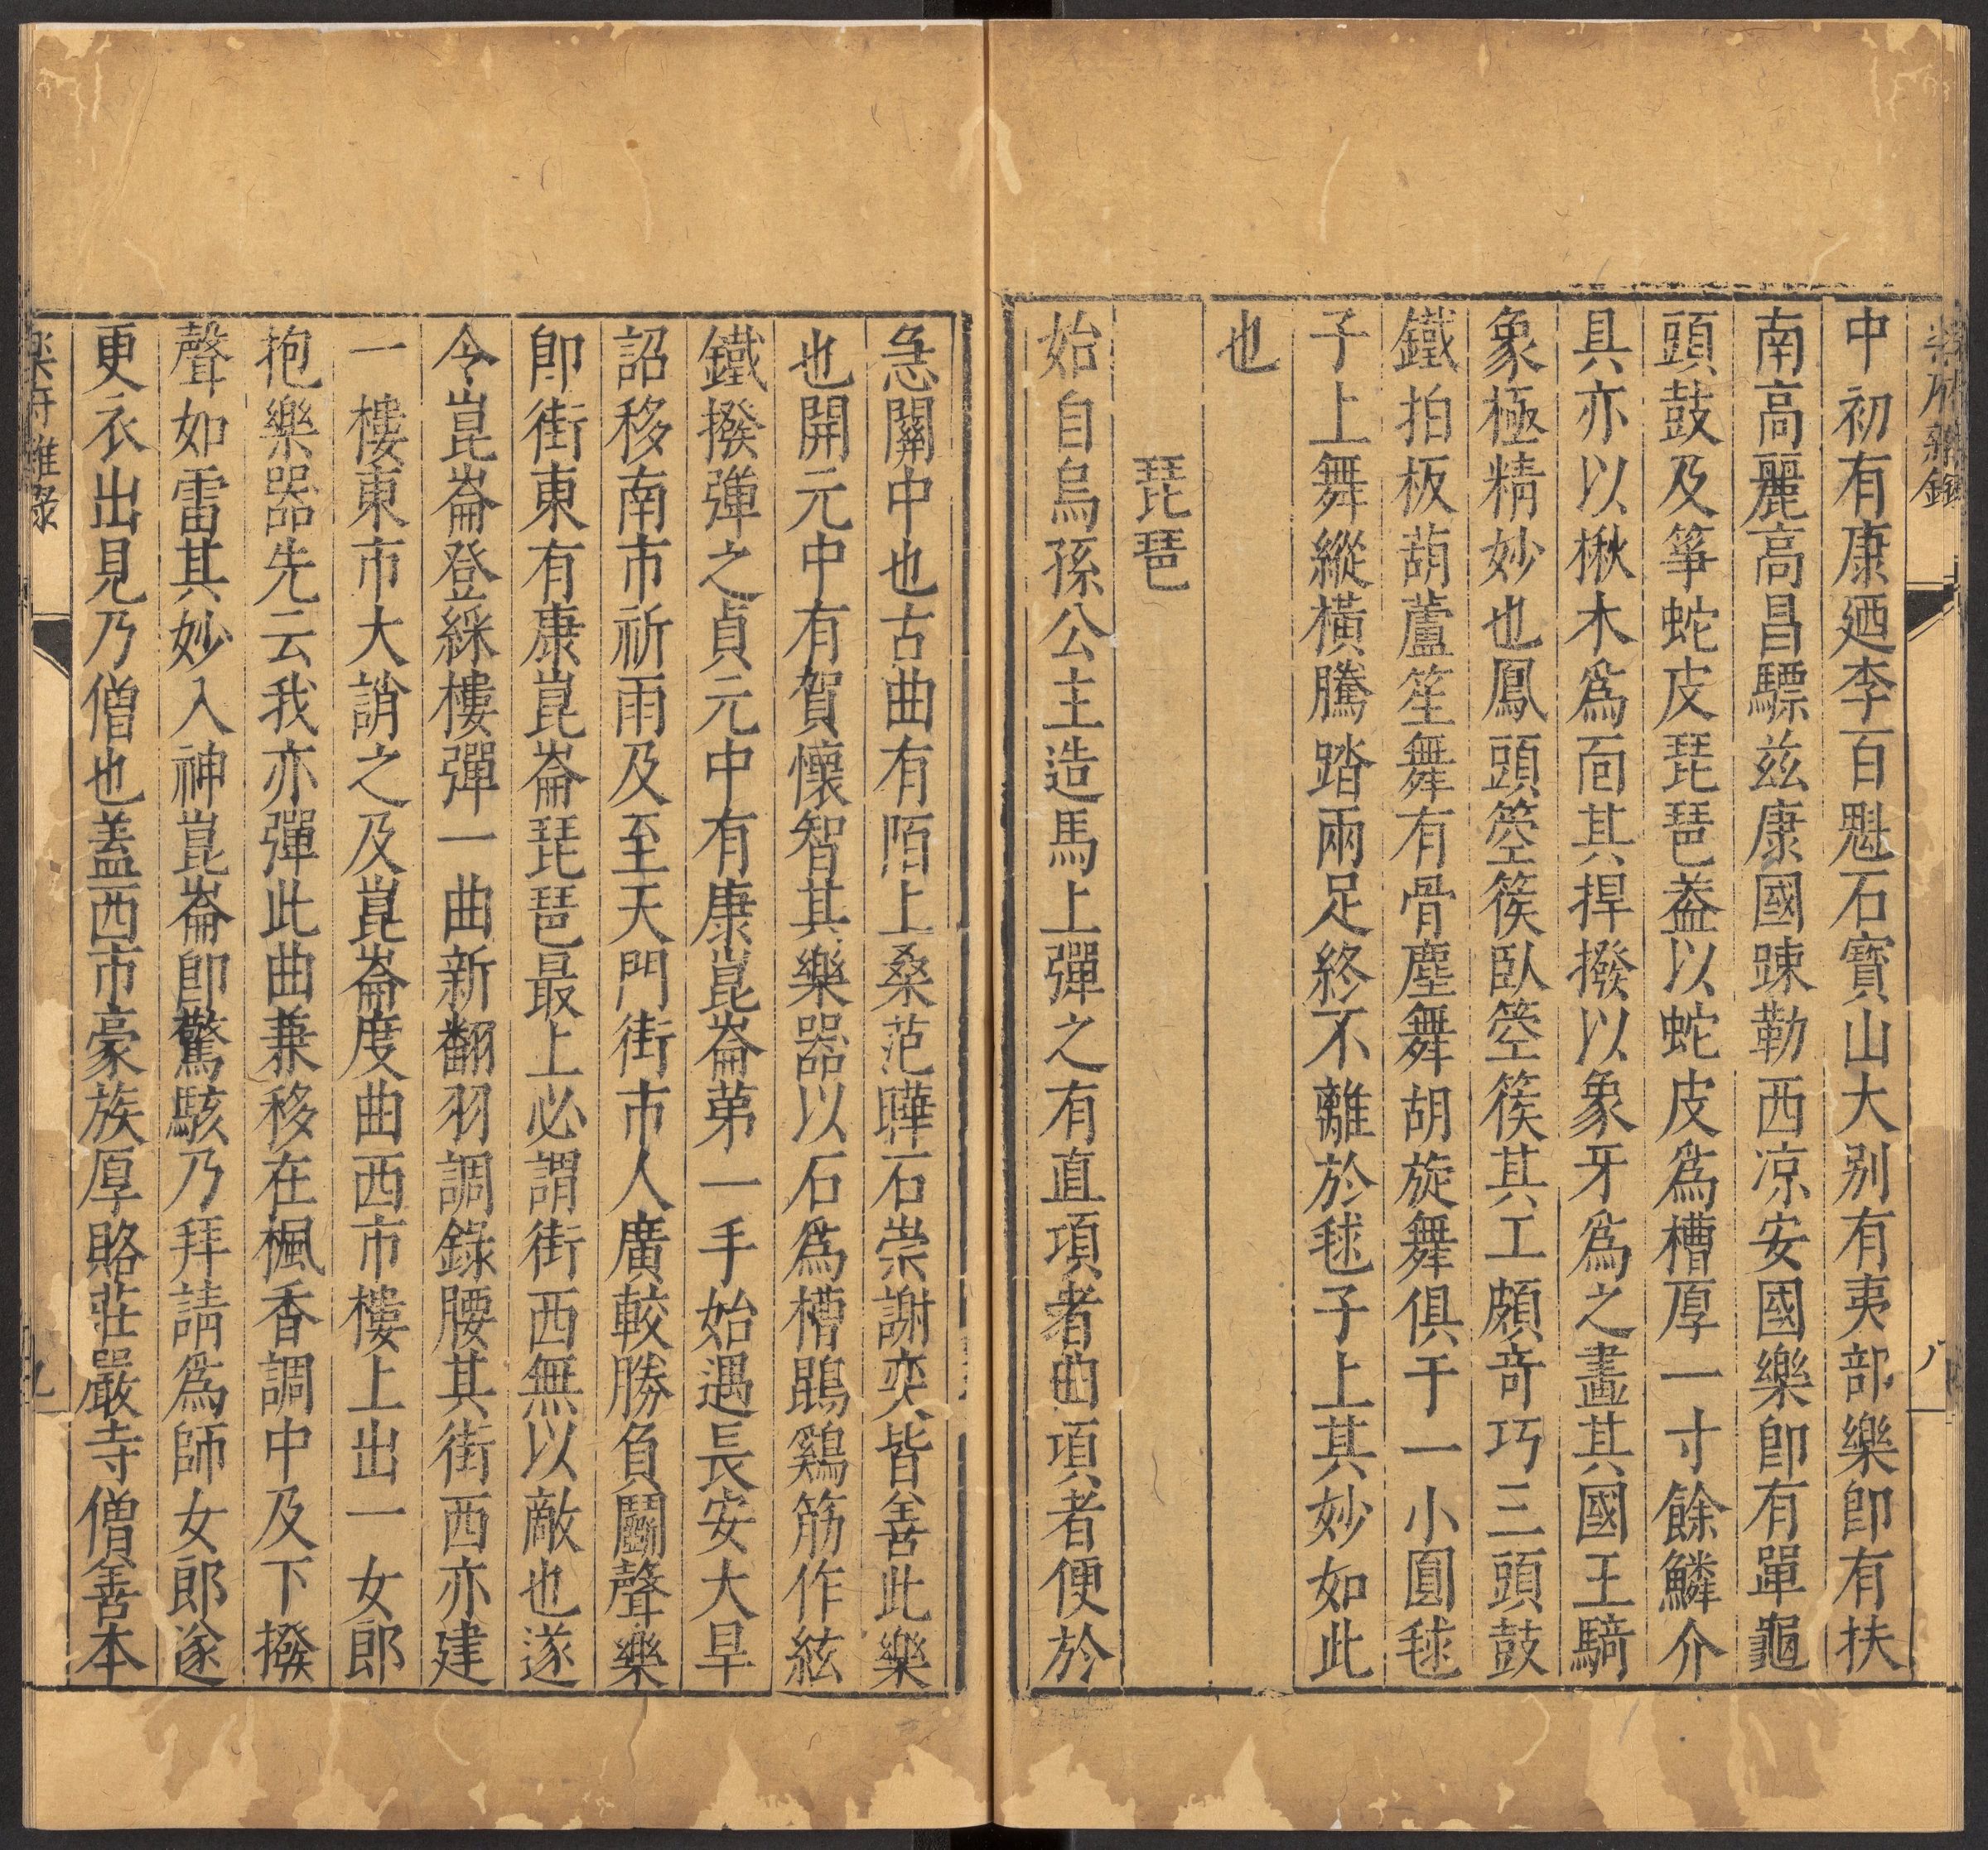 樂府雜錄
八
中初有康廼李百魁石寶山大别有夷部樂即有扶
南高麗高昌驃兹康國踈勒西凉安國樂即有單龜
頭鼓及箏蛇皮琵琶盖以蛇皮爲槽厚一寸餘鱗介
具亦以楸木爲面其捍撥以象牙爲之畫其國王騎
象極精妙也鳳頭箜篌臥箜篌其工頗奇巧三頭鼓
鐵拍板葫蘆笙舞有骨塵舞胡旋舞俱于一小圓毬
子上舞縱橫騰踏兩足終不離於毬子上其妙如此
也
琵琶
始自烏孫公主造馬上彈之有直項者曲項者便於
急關中也古曲有陌上桑范曄石崇謝奕皆善此樂
也開元中有賀懷智其樂器以石爲槽鵾鷄筋作絃
鐵撥彈之貞元中有康崑崙苐一手始遇長安大旱
詔移南市祈雨及至天門街市人廣較勝負鬭聲樂
即街東有康崑崙琵琶最上必謂街西無以敵也遂
令崑崙登綵樓彈一曲新翻羽調錄腰其街西亦建
一樓東市大誚之及崑崙度曲西市樓上出一女郎
抱樂器先云我亦彈此曲兼移在楓香調中及下撥
聲如雷其妙入神崑崙即驚駭乃拜請爲師女郎遂
更衣出見乃僧也盖西市豪族厚賂莊嚴寺僧善本
樂府雜錄
九